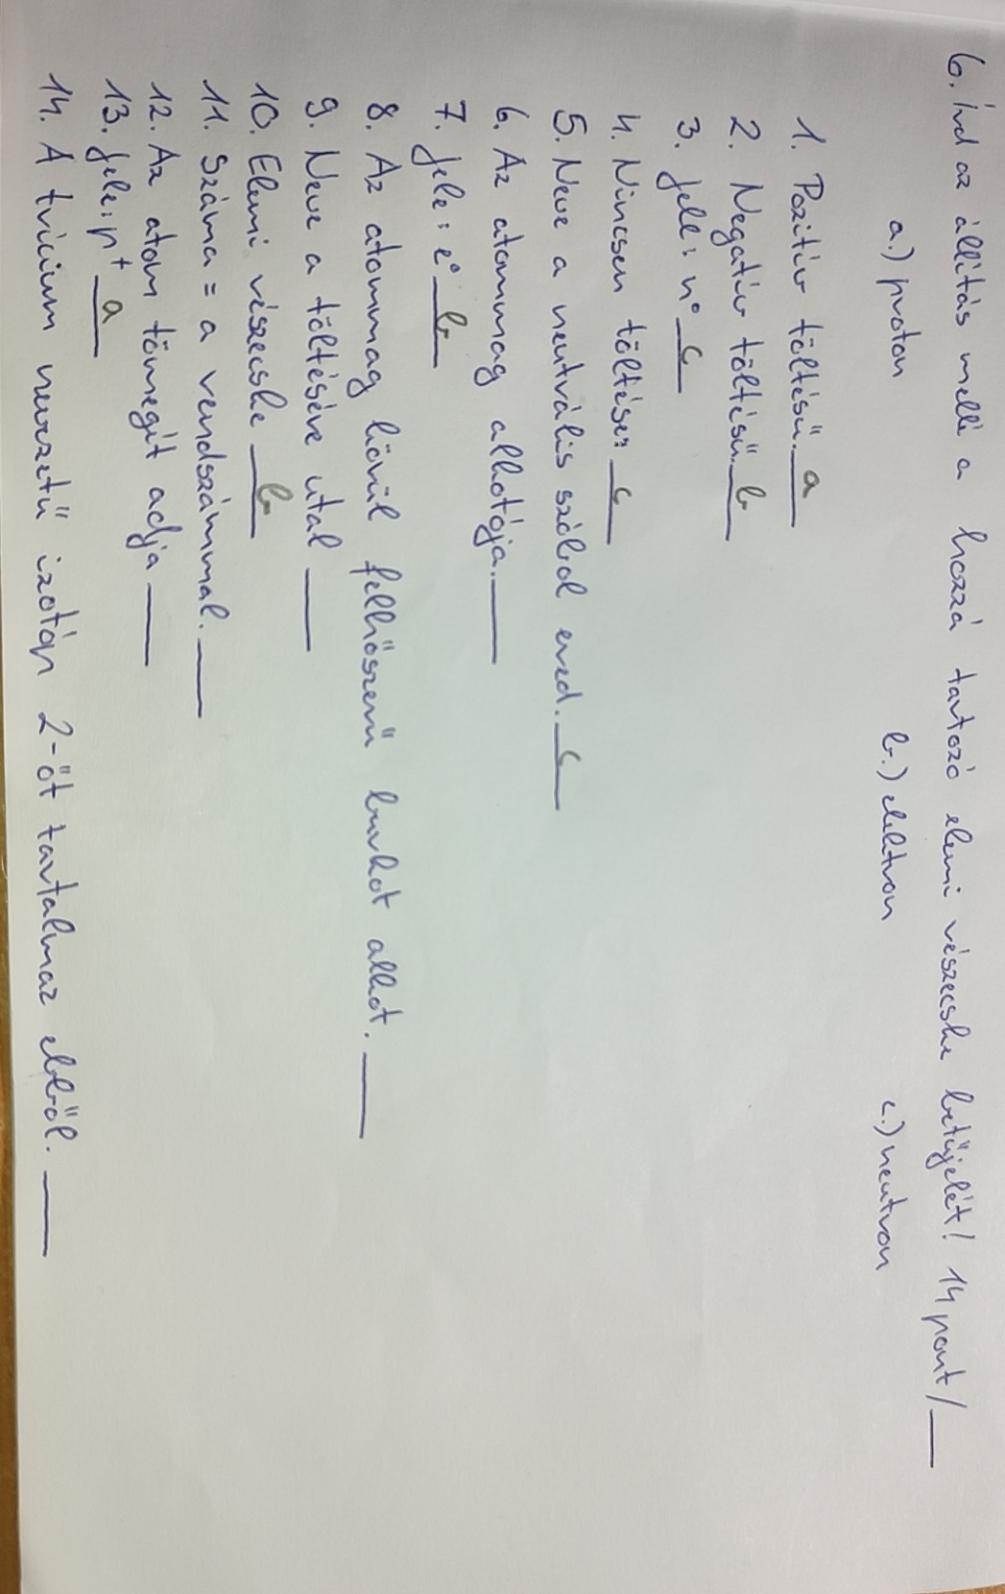 6. Írd az állítás mellé a hozzá tartozó elemi részecske betűjelét! 14 pont/___
a.) proton b.) elektron c.) neutron
1. Pozitív töltésű. a
2. Negatív töltésű. b
3. Jele: n° c
4. Nincsen töltése: c
5. Neve a neutrális szóból ered. c
6. Az atommag alkotója. ___
7. Jele: e° b
8. Az atommag körül felhőszerű burkot alkot. ___
9. Neve a töltésére utal ___
10. Elemi részecske b
11. Száma = a rendszámmal. ___
12. Az atom tömegét adja ___
13. Jele: p⁺ a
14. A trícium nevezetű izotóp 2-őt tartalmaz ebből. ___